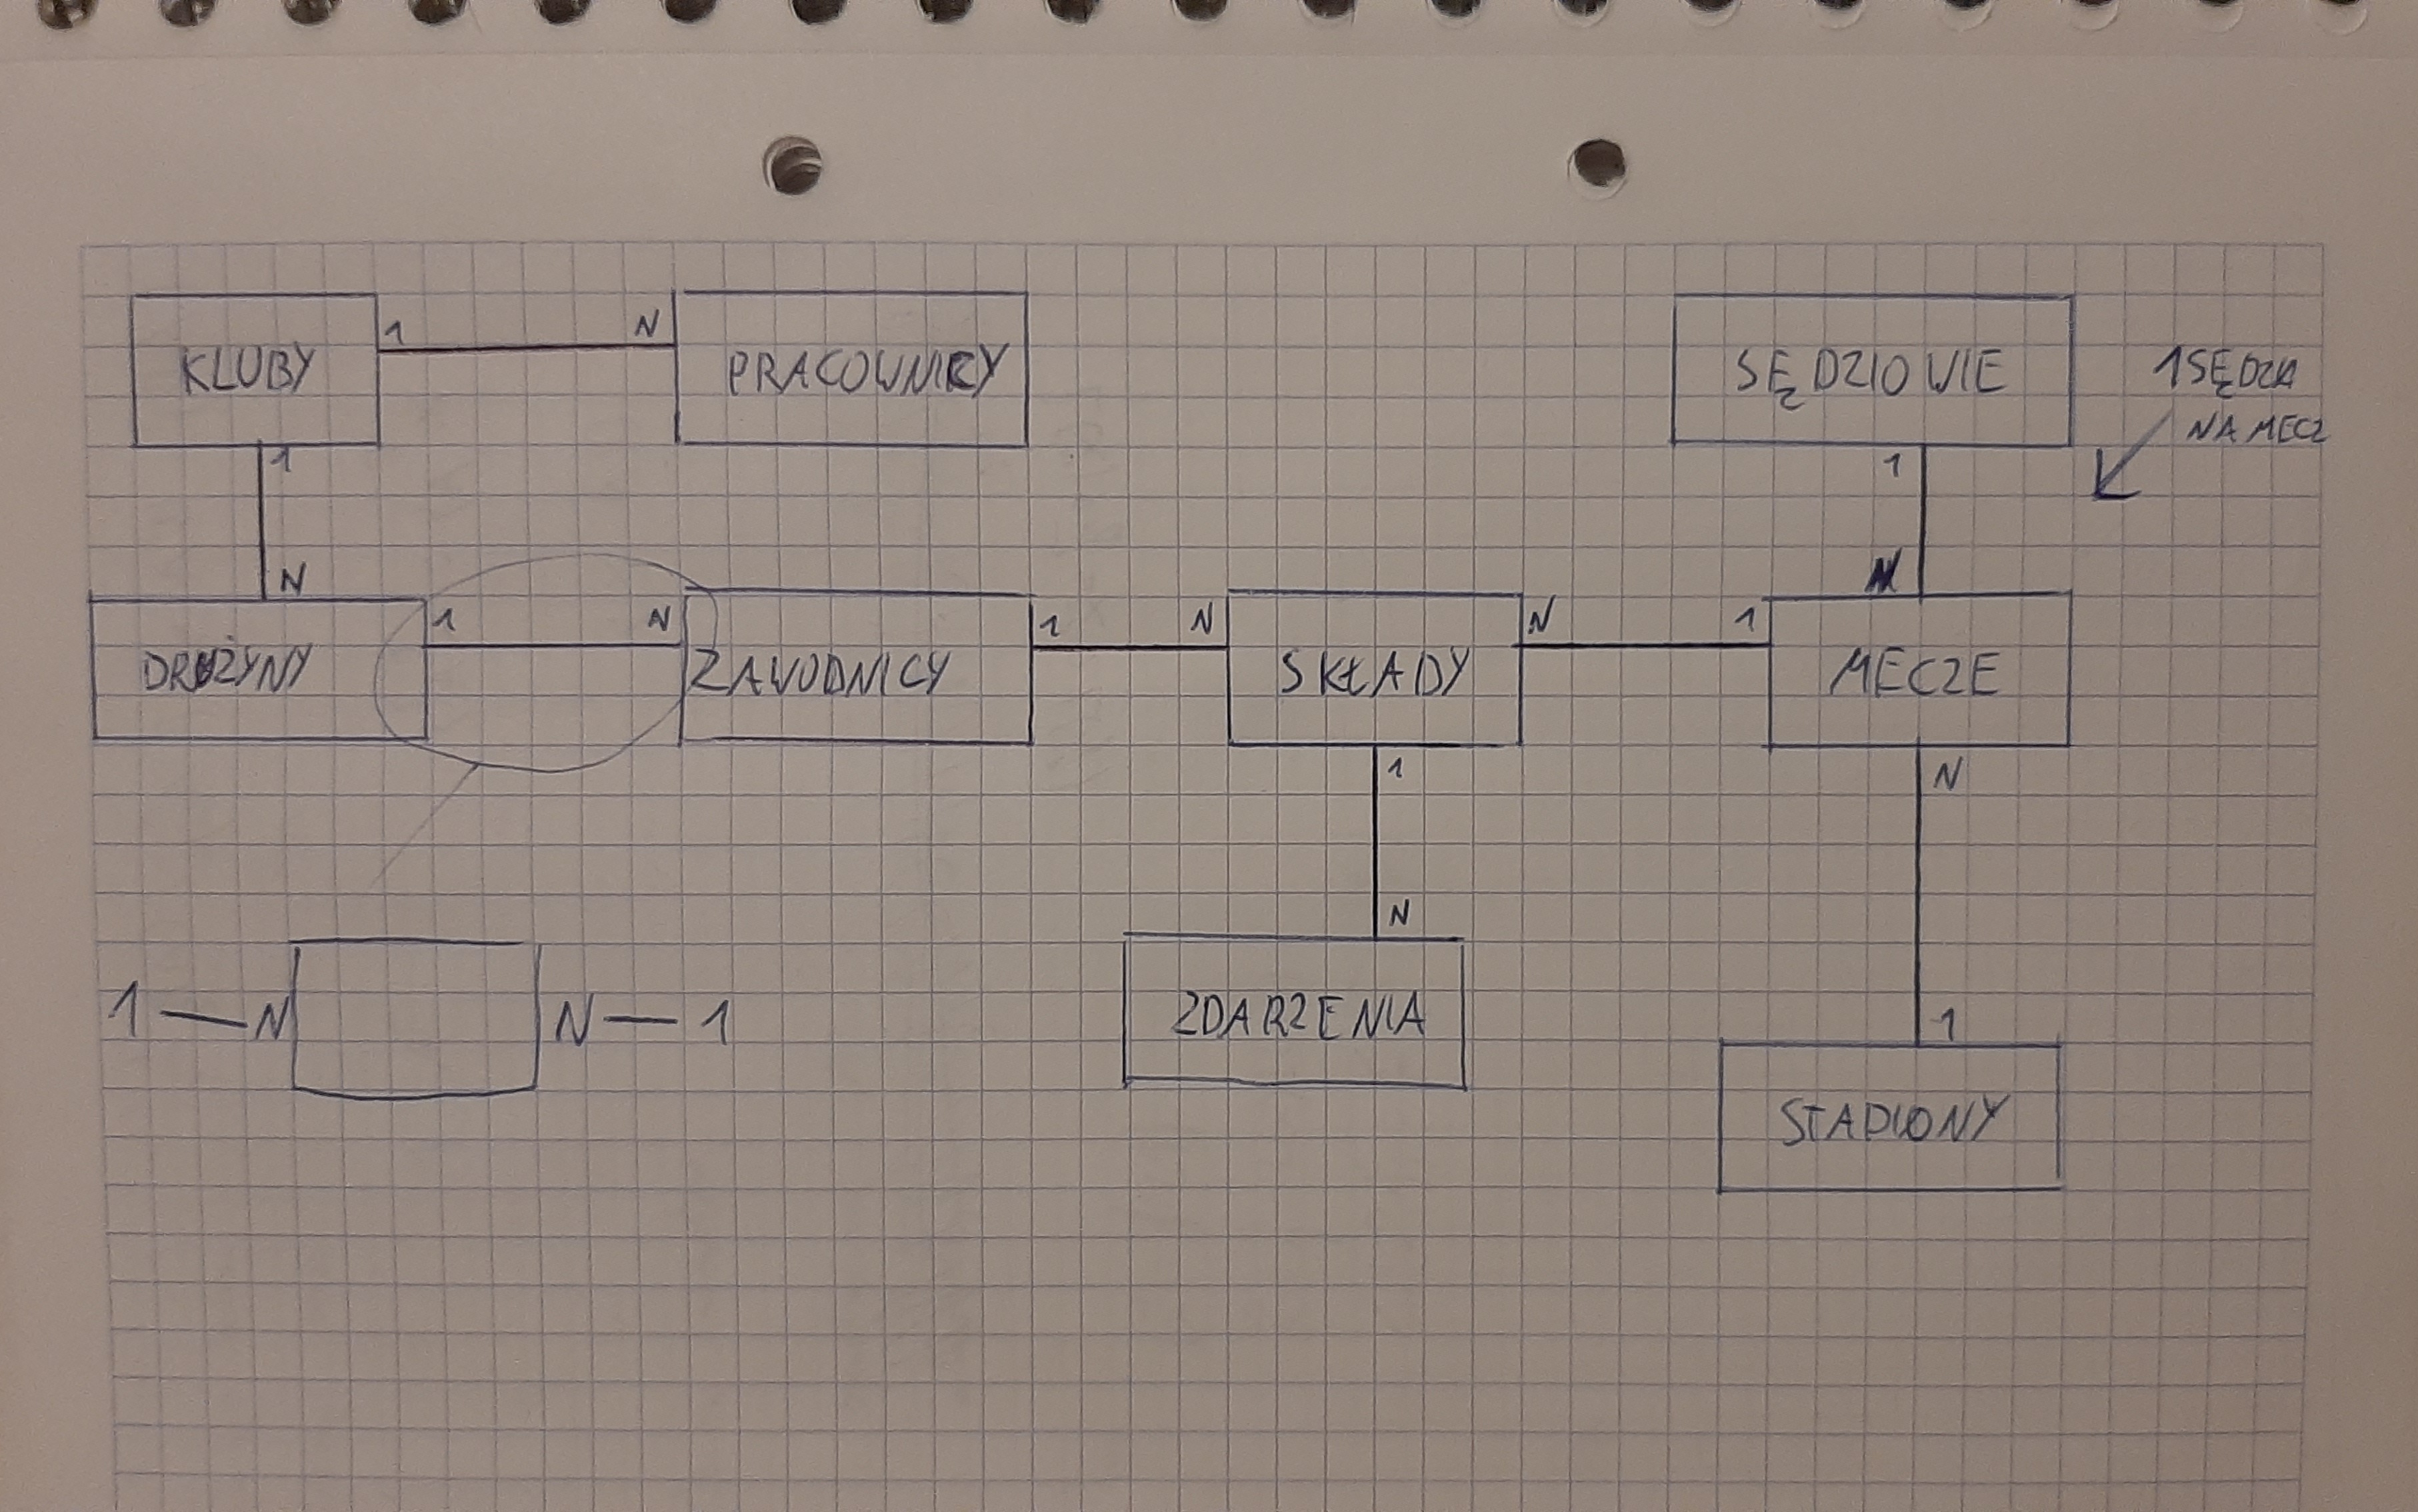 1 N
KLUBY PRACOWNICY SĘDZIOWIE 1 SĘDZIA
NA MECZ
1 1
N N
1 N 1 N N 1
DRUŻYNY ZAWODNICY SKŁADY MECZE
1 N
N
1 — N N — 1 ZDARZENIA 1
STADIONY